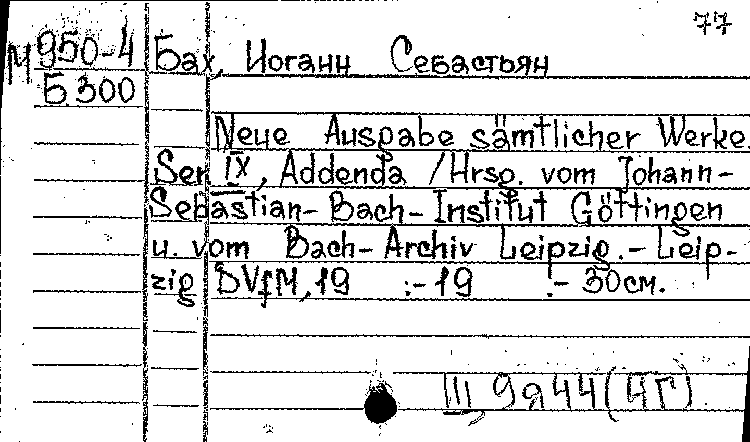 77
М 950-4 Бах, Иоганн Себастьян
Б 300
Neue Ausgabe sämtlicher Werke.
Ser IX, Addenda /Hrsg. vom Johann-
Sebastian-Bach-Institut Göttingen
u. vom Bach-Archiv Leipzig.-Leip-
zig DVfM, 19 :-19 .- 30см.
III, 9я44(4Г)